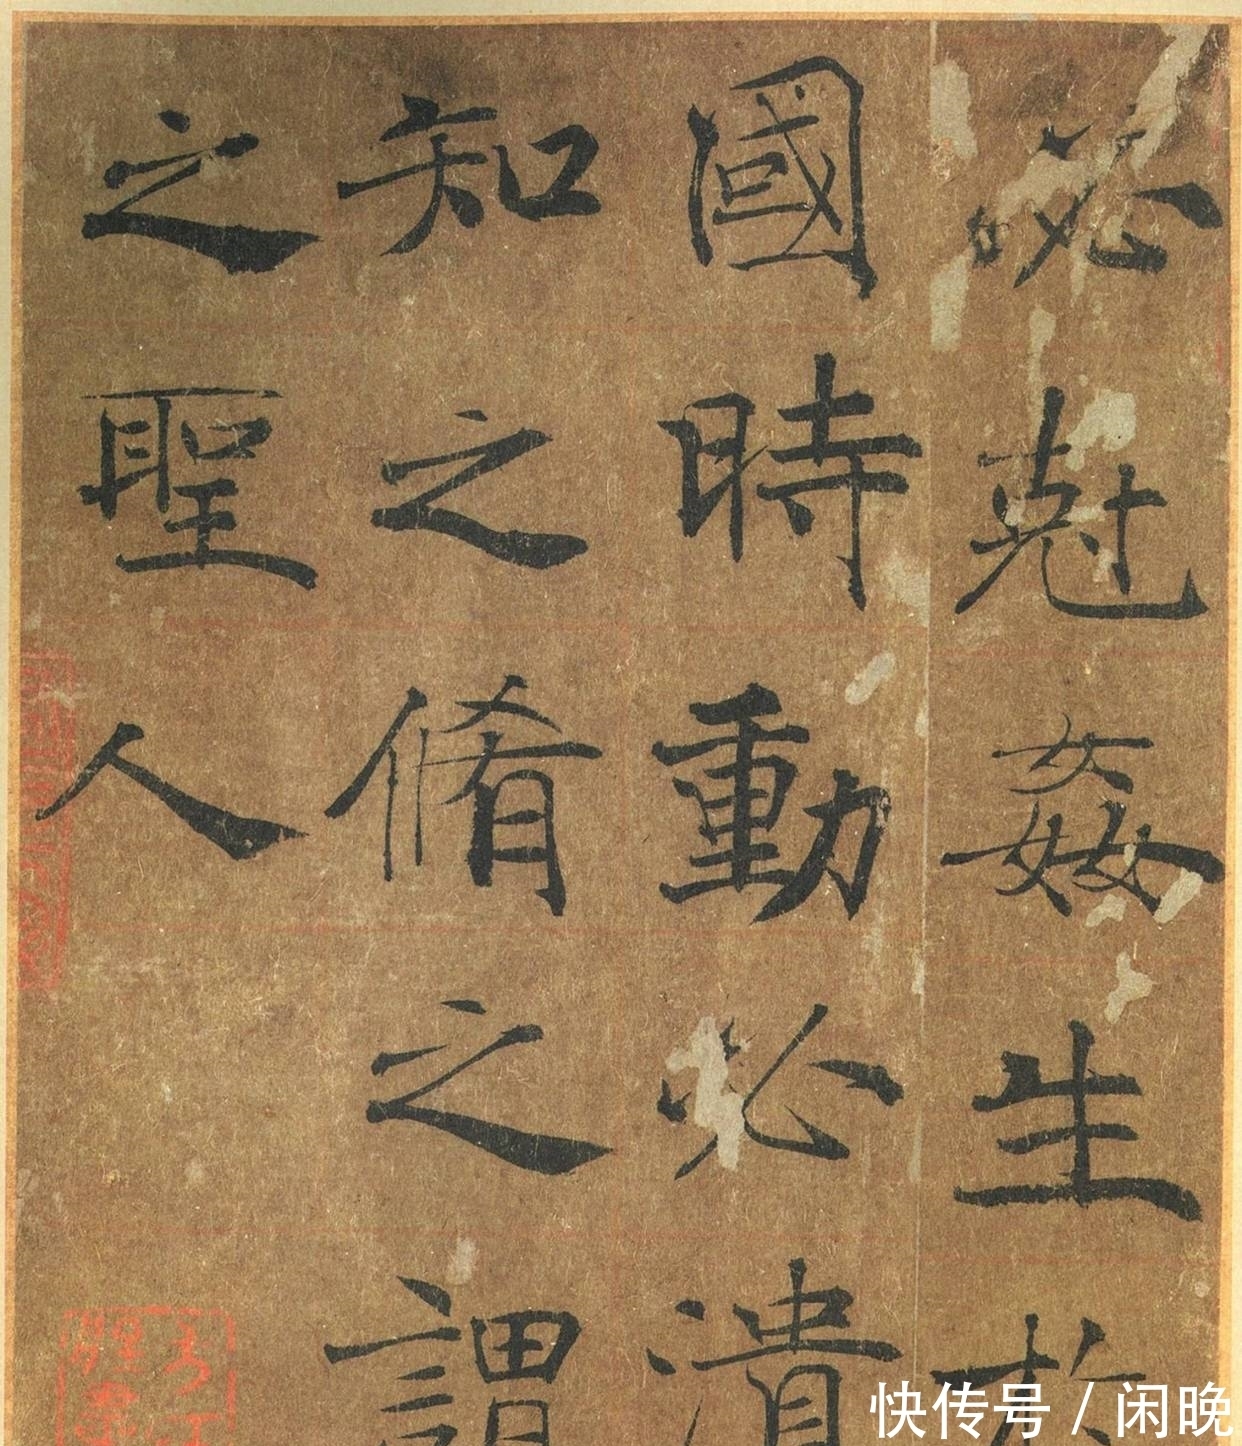 必尅姦生於
國時動必潰
知之脩之謂
之聖人
快传号 / 闲晚